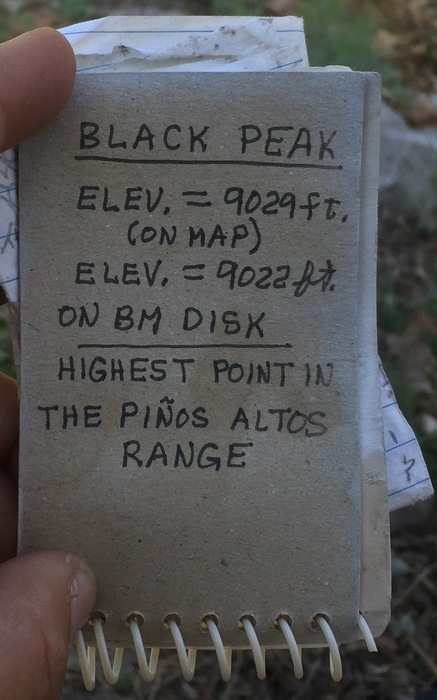 BLACK PEAK
ELEV. = 9029 ft.
(ON MAP)
ELEV. = 9022 ft.
ON BM DISK
HIGHEST POINT IN
THE PIÑOS ALTOS
RANGE